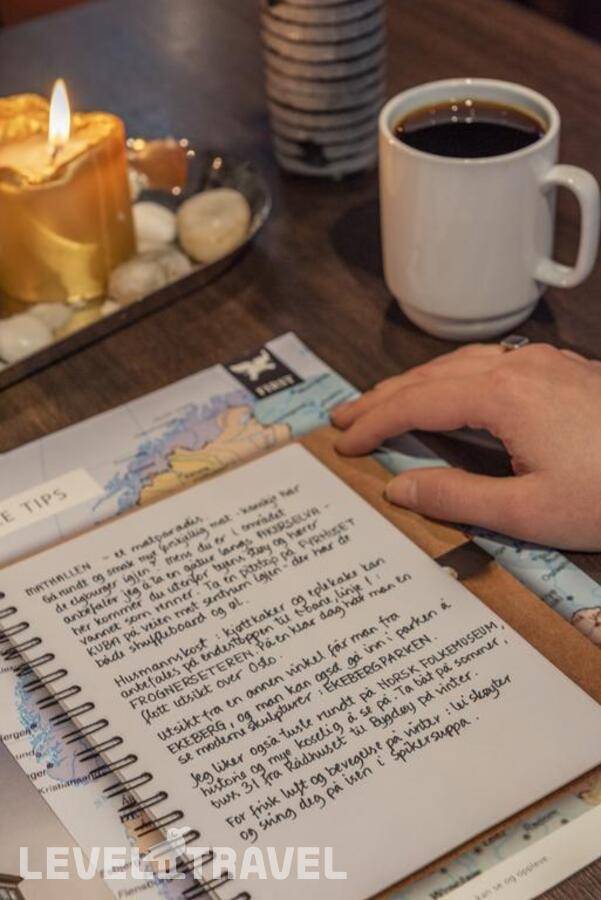 FIRST
E TIPS
MATHALLEN - et matparadis.
Gå rundt og smak mye forskjellig mat - kanskje har
de elgburger igjen? Mens du er i området
anbefaler jeg å ta en gåtur langs AKERSELVA -
her kommer du utenfor byens støy og hører
vannet som renner. Ta en pitstop på FYRHUSET
KUBA på veien mot sentrum igjen - der har de
både shuffleboard og øl.
Humannskost: kjøttkaker og eplekake kan
anbefales på endestoppen til t-bane linje 1:
FROGNERSETEREN. På en klar dag har man en
flott utsikt over Oslo.
Utsikt fra en annen vinkel får man fra
EKEBERG, og man kan også gå inn i parken å
se moderne skulpturer: EKEBERGPARKEN.
Jeg liker også tusle rundt på NORSK FOLKEMUSEUM,
historie og mye koselig å se på. Ta båt på sommer,
buss 31 fra Rådhuset til Bygdøy på vinter.
For frisk luft og bevegelse på vinter: lei skøyter
og sving deg på isen i Spikersuppa.
Kristiansand
kan se og oppleve.
LEVEL TRAVEL